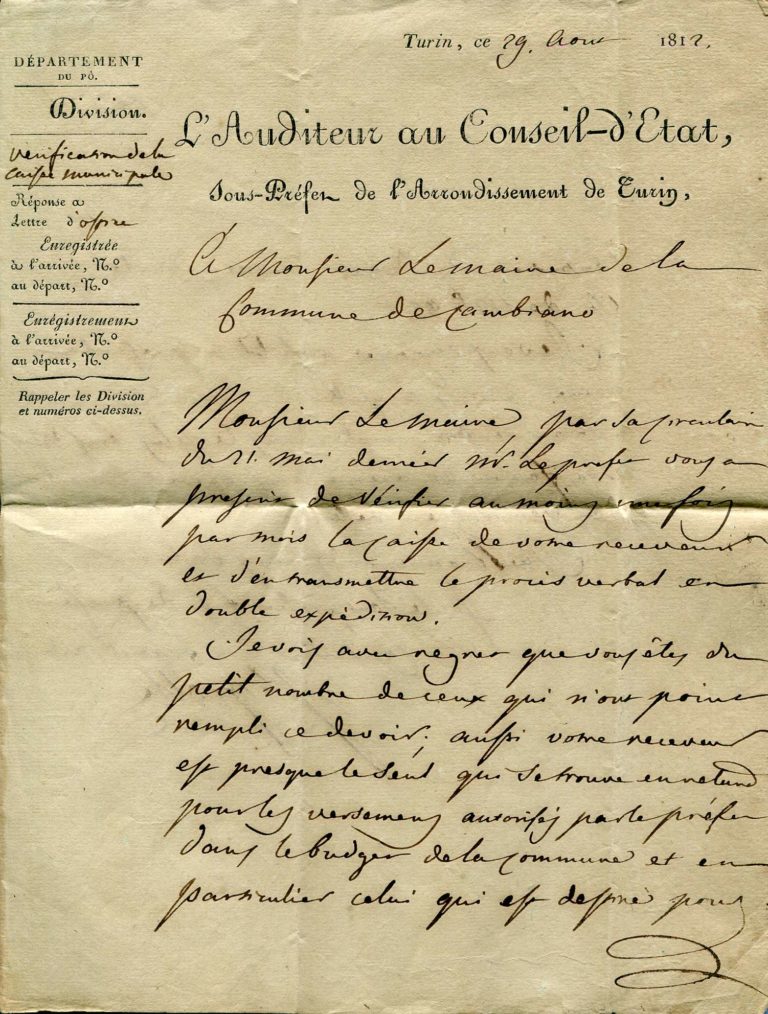 Turin, ce 29. Aout 1812.
DÉPARTEMENT
DU PÔ.
Division.
verification de la
caisse municipale
Réponse a
Lettre d'office
Enregistrée
à l'arrivée, N.º
au départ, N.º
Enrégistrement
à l'arrivée, N.º
au départ, N.º
Rappeler les Division
et numéros ci-dessus.
L'Auditeur au Conseil-d'Etat,
Sous-Préfet de l'Arrondissement de Turin,
A Monsieur Le maire de la
Commune de Cambiano
Monsieur Le maire, par sa circulaire
du 21. mai dernier mr. Le prefet vous a
prescrit de vérifier au moins une fois
par mois la caisse de votre receveur
et d'en transmettre le procès verbal en
double expédition.
Je vois avec regret que vous êtes du
petit nombre de ceux qui n'ont point
rempli ce devoir; aussi votre receveur
est presque le seul qui se trouve en retard
pour les versemens autorisés par le préfet
dans le budget de la commune et en
particulier celui qui est destiné pour